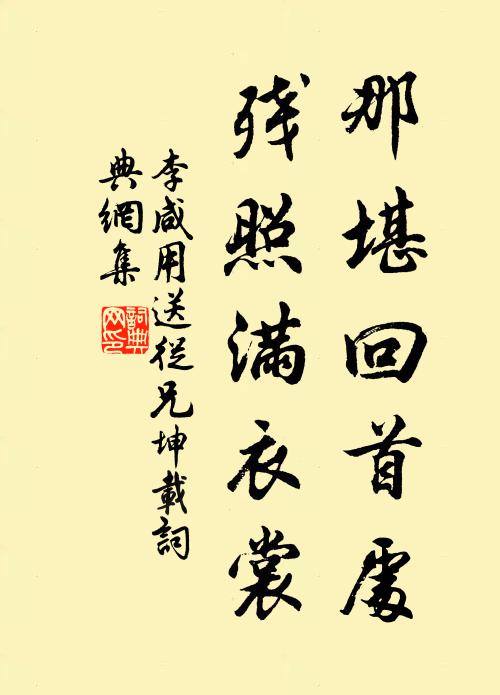 那堪回首處
残照滿衣裳
李咸用送從兄坤載詞
典網集
詞典
网印